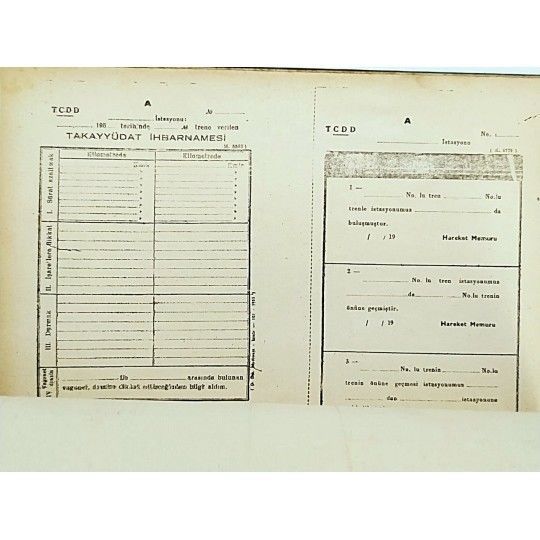 TCDD
A
No
İstasyonu:
198 tarih'nde
trene verilen
TAKAYYÜDAT İHBARNAMESİ
Kilometrede Kilometrede
I. Sürat azaltmak
II. İşaretlere dikkat
III. Durmak
IV
arasında bulunan
vagonet, dikkat edileceğinden bilgi aldım.
TCDD
A
No. :
İstasyonu
1 —
No. lu tren No.lu
trenle istasyonumuz da
buluşmuştur.
/ / 19 Hareket Memuru
2 —
No. lu tren istasyonumuz
da No.lu trenin
önüne geçmiştir.
/ / 19 Hareket Memuru
3 —
No. lu trenin No.lu
trenin önüne geçmesi istasyonumuz
dan istasyonuna